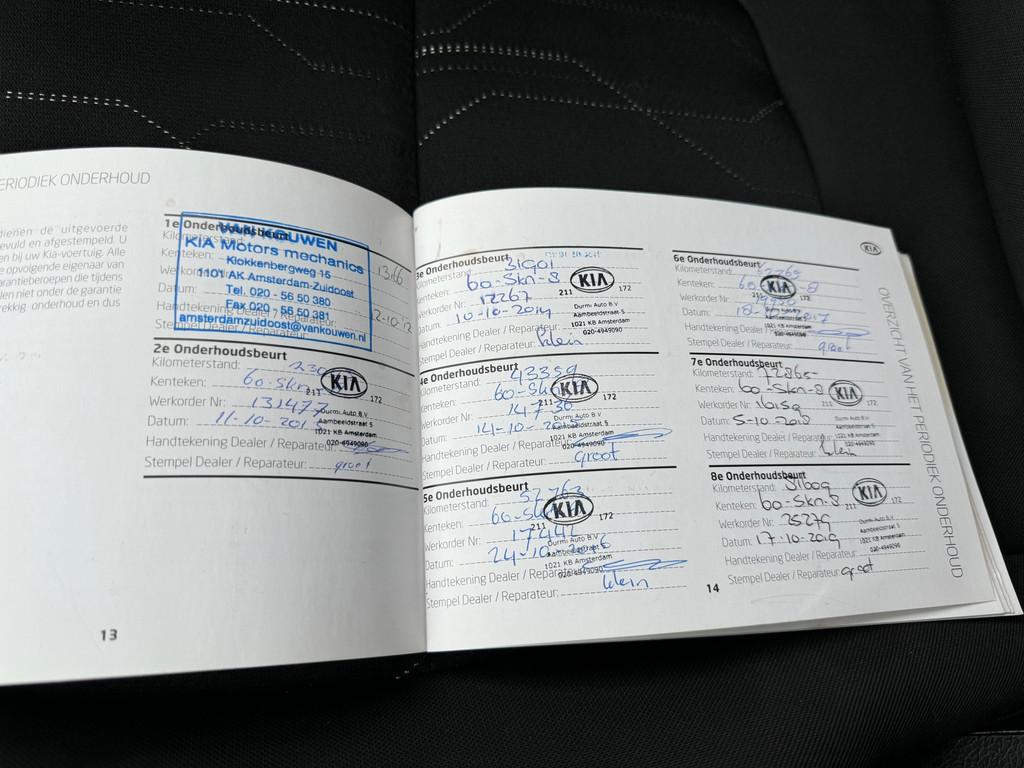 ERIODIEK ONDERHOUD
dienen de uitgevoerde
evuld en afgestempeld. U
en bij uw Kia-voertuig. Alle
e opvolgende eigenaar van
arantieberoepen die tijdens
len niet onder de garantie
rekkig onderhoud en dus
13
1e Onderhoudsbeurt
Kilometerstand
Kenteken:
Datum:
Handtekening Dealer / Reparateur
Stempel Dealer / Reparateur
VAN KOUWEN
KIA Motors mechanics
Klokkenbergweg 15
1101 AK Amsterdam-Zuidoost
Tel. 020 - 56 50 380
Fax 020 - 56 50 381
amsterdamzuidoost@vankouwen.nl
2e Onderhoudsbeurt
Kilometerstand:
Kenteken: 60-Skn
Werkorder Nr: 131477
Datum: 11-10-201
Handtekening Dealer / Reparateur:
Stempel Dealer / Reparateur: groot
KIA
211 172
Durmi Auto B.V
Aambeeldstraat 5
1021 KB Amsterdam
020-4949090
3e Onderhoudsbeurt
Kilometerstand: 31901
Kenteken: 60-Skn-8
Werkorder Nr: 12267
Datum: 10-10-2014
Handtekening Dealer / Reparateur:
Stempel Dealer / Reparateur: klein
KIA
211 172
Durmi Auto B.V
Aambeeldstraat 5
1021 KB Amsterdam
020-4949090
4e Onderhoudsbeurt
Kilometerstand: 43359
Kenteken: 60-Skn
Werkorder Nr: 14730
Datum: 14-10-20
Handtekening Dealer / Reparateur:
Stempel Dealer / Reparateur: groot
KIA
211 172
Durmi Auto B.V
Aambeeldstraat 5
1021 KB Amsterdam
020-4949090
5e Onderhoudsbeurt
Kilometerstand: 52763
Kenteken: 60-Skn
Werkorder Nr: 17442
Datum: 24-10-2016
Handtekening Dealer / Reparateur:
Stempel Dealer / Reparateur: klein
KIA
211 172
Durmi Auto B.V
Aambeeldstraat 5
1021 KB Amsterdam
020-4949090
6e Onderhoudsbeurt
Kilometerstand:
Kenteken: 60 -8
Werkorder Nr:
Datum: 2017
Handtekening Dealer / Reparateur:
Stempel Dealer / Reparateur: groot
KIA
Durmi Auto B.V
Aambeeldstraat 5
1021 KB Amsterdam
020-4949090
7e Onderhoudsbeurt
Kilometerstand: 72865
Kenteken: 60-Skn-8
Werkorder Nr:
Datum: 5-10-2018
Handtekening Dealer / Reparateur:
Stempel Dealer / Reparateur: klein
KIA
211 172
Durmi Auto B.V
Aambeeldstraat 5
1021 KB Amsterdam
020-4949090
8e Onderhoudsbeurt
Kilometerstand: 81609
Kenteken: 60-Skn-8
Werkorder Nr: 25279
Datum: 17-10-2019
Handtekening Dealer / Reparateur:
Stempel Dealer / Reparateur: groot
KIA
211 172
Durmi Auto B.V
Aambeeldstraat 5
1021 KB Amsterdam
020-4949090
14
KIA
OVERZICHT VAN HET PERIODIEK ONDERHOUD